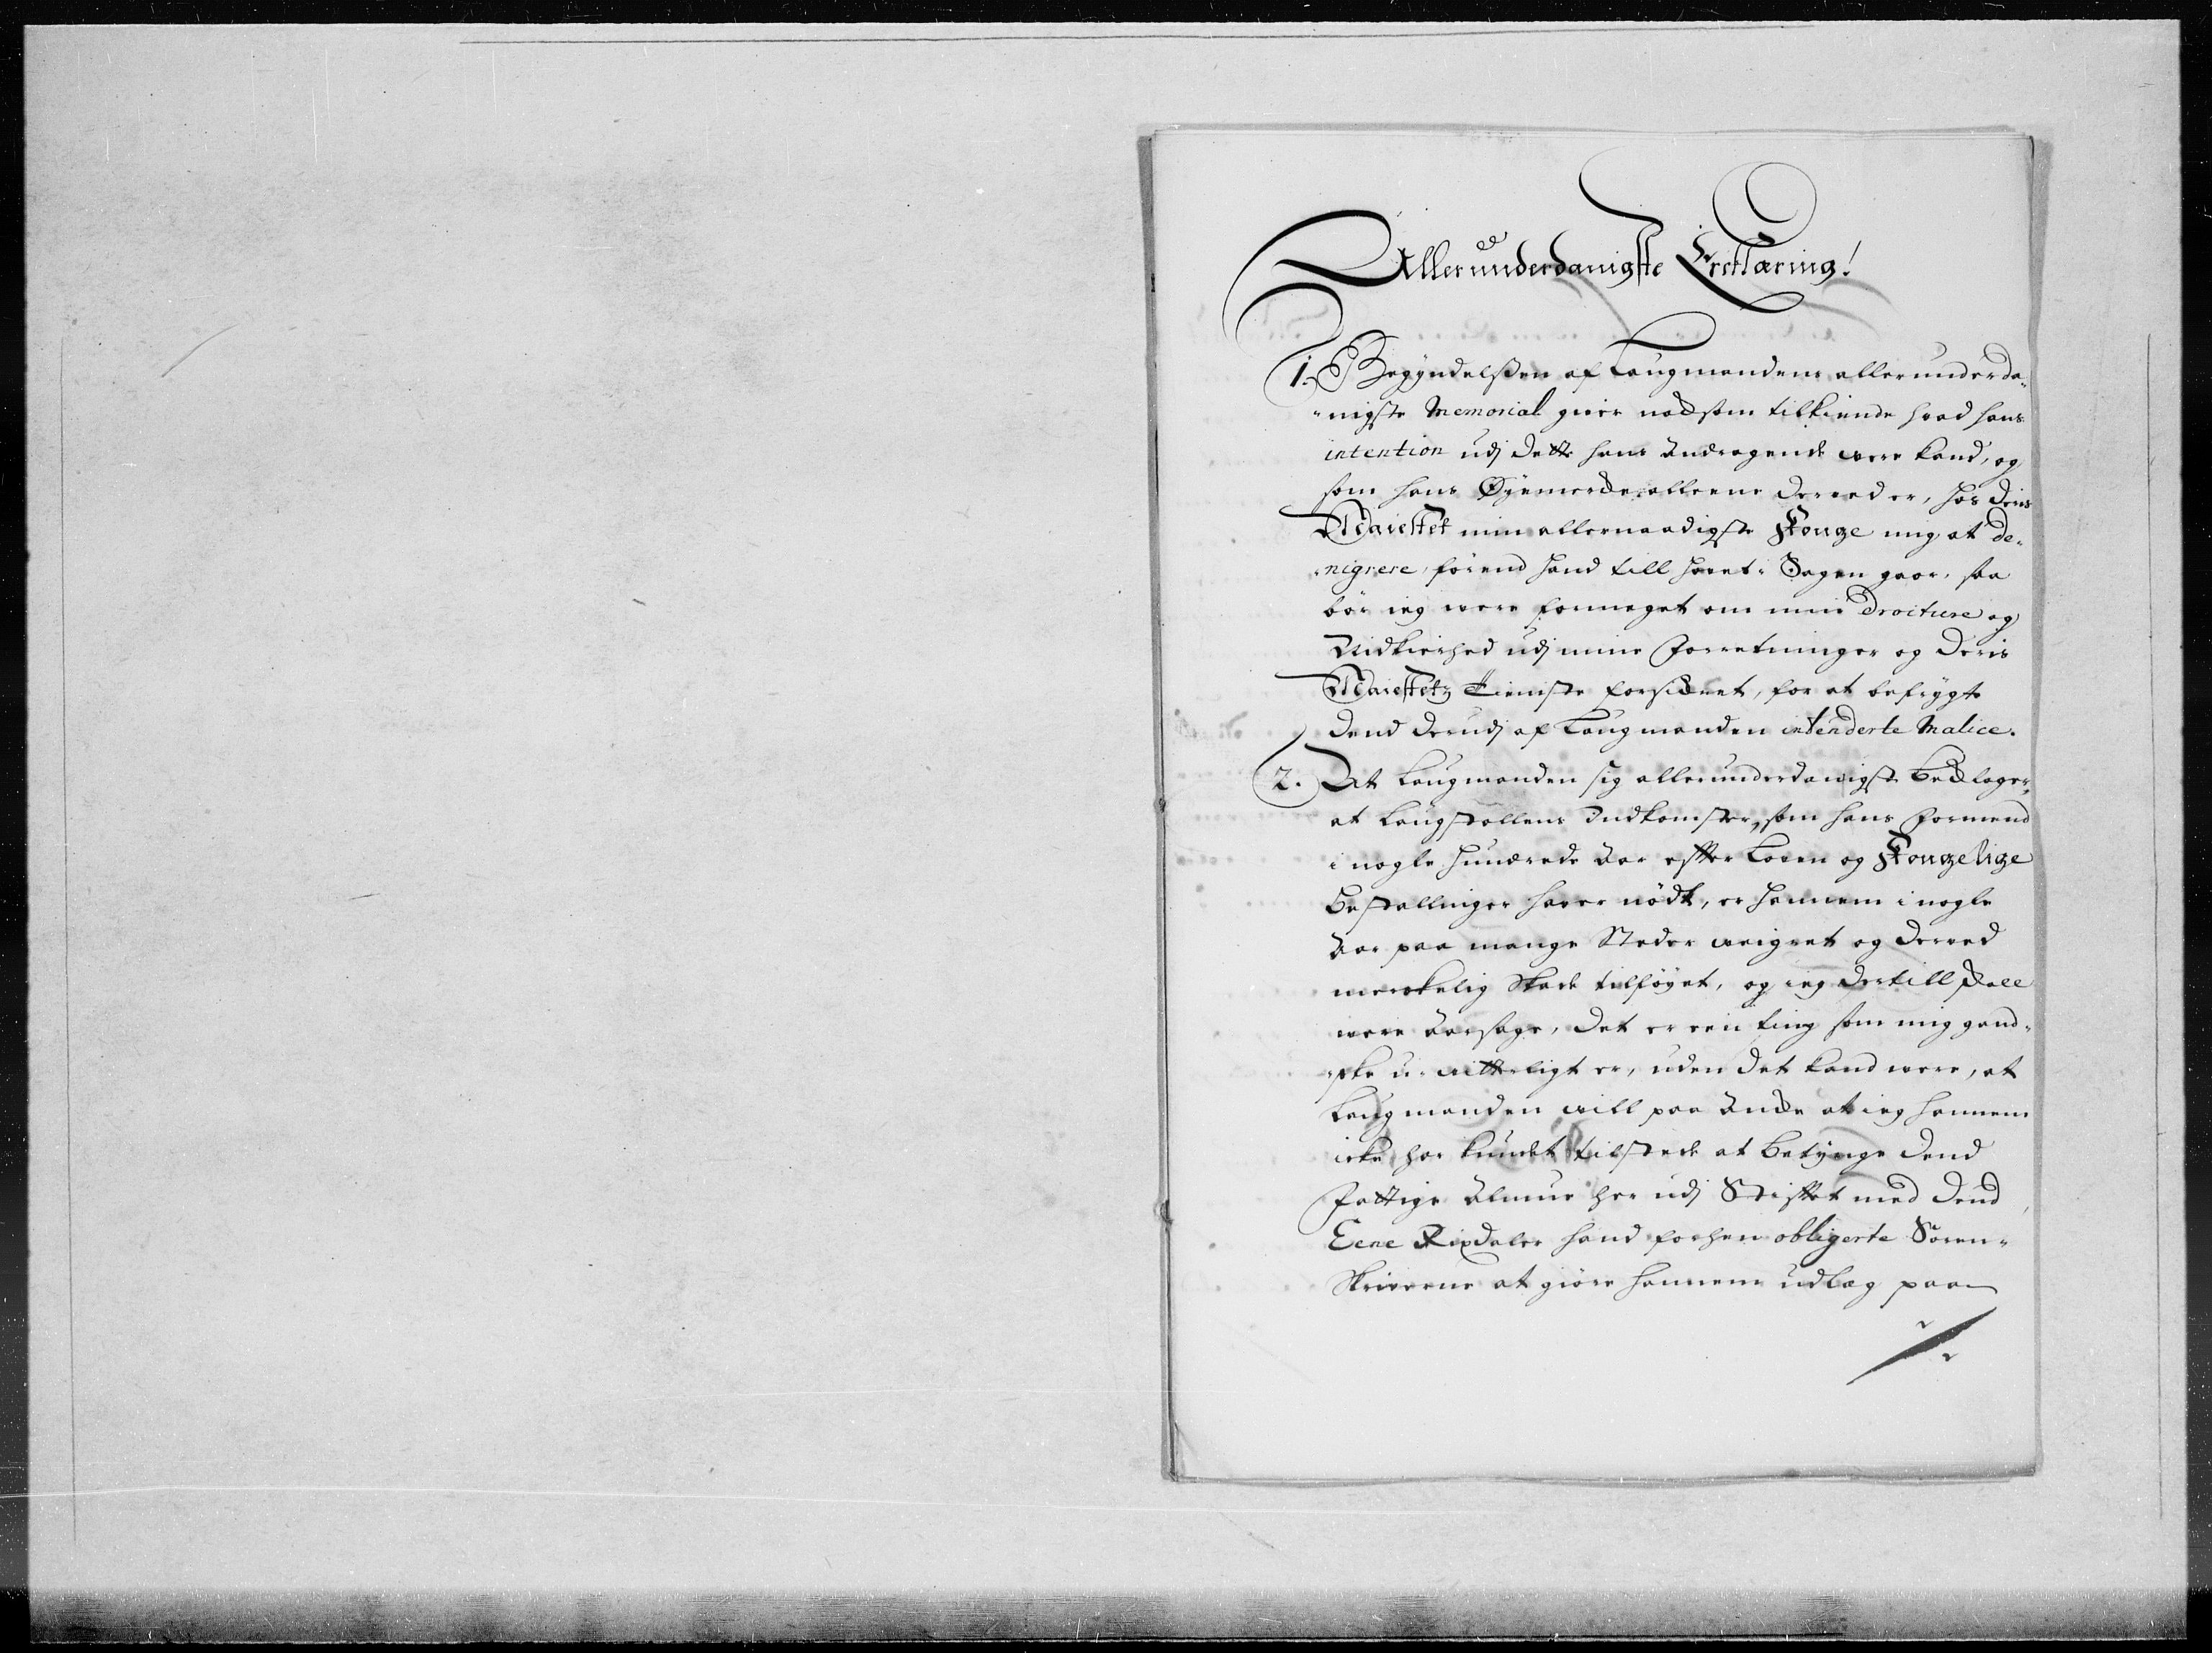 Allerunderdanigste Erclæring!
1. Begyndelsen af Laugmandens allerunderda-
nigste Memorial giver nocksom tilkiende hvad hans
intention udj dette hans Andragende were kand, og
som hans Øyemercke alleene derved er, hos Deris
Maiestet min allernaadigste Konge mig at de-
nigrere, førend hand till hovet-Sagen gaar, saa
bør ieg were formeget om min Droiture og
Nidkierhed udj mine Forretninger og Deris
Maiestetz Tieniste forsickret, for at befrygte
dend derudj af Laugmanden intenderte Malice.
2. At Laugmanden sig allerunderdanigst beklager,
at Laugstollens Indkomster, som hans Formend
i nogle hundrede Aar efter Loven og Kongelige
Bestallinger haver nødt, er hannem i nogle
Aar paa mange Steder weigret og derved
merckelig Skade tilføyet, og ieg dertill skall
were Aarsage, det er een ting som mig gand-
ske u-witterligt er, uden det kand were, at
Laugmanden will paa Ancke at ieg hannem
icke har kundet tilstede at betynge dend
fattige Almue her udj Stiftet med dend
Eene Rixdaler hand forhen obligerte Soren-
Skriverne at giøre hannem udlag paa